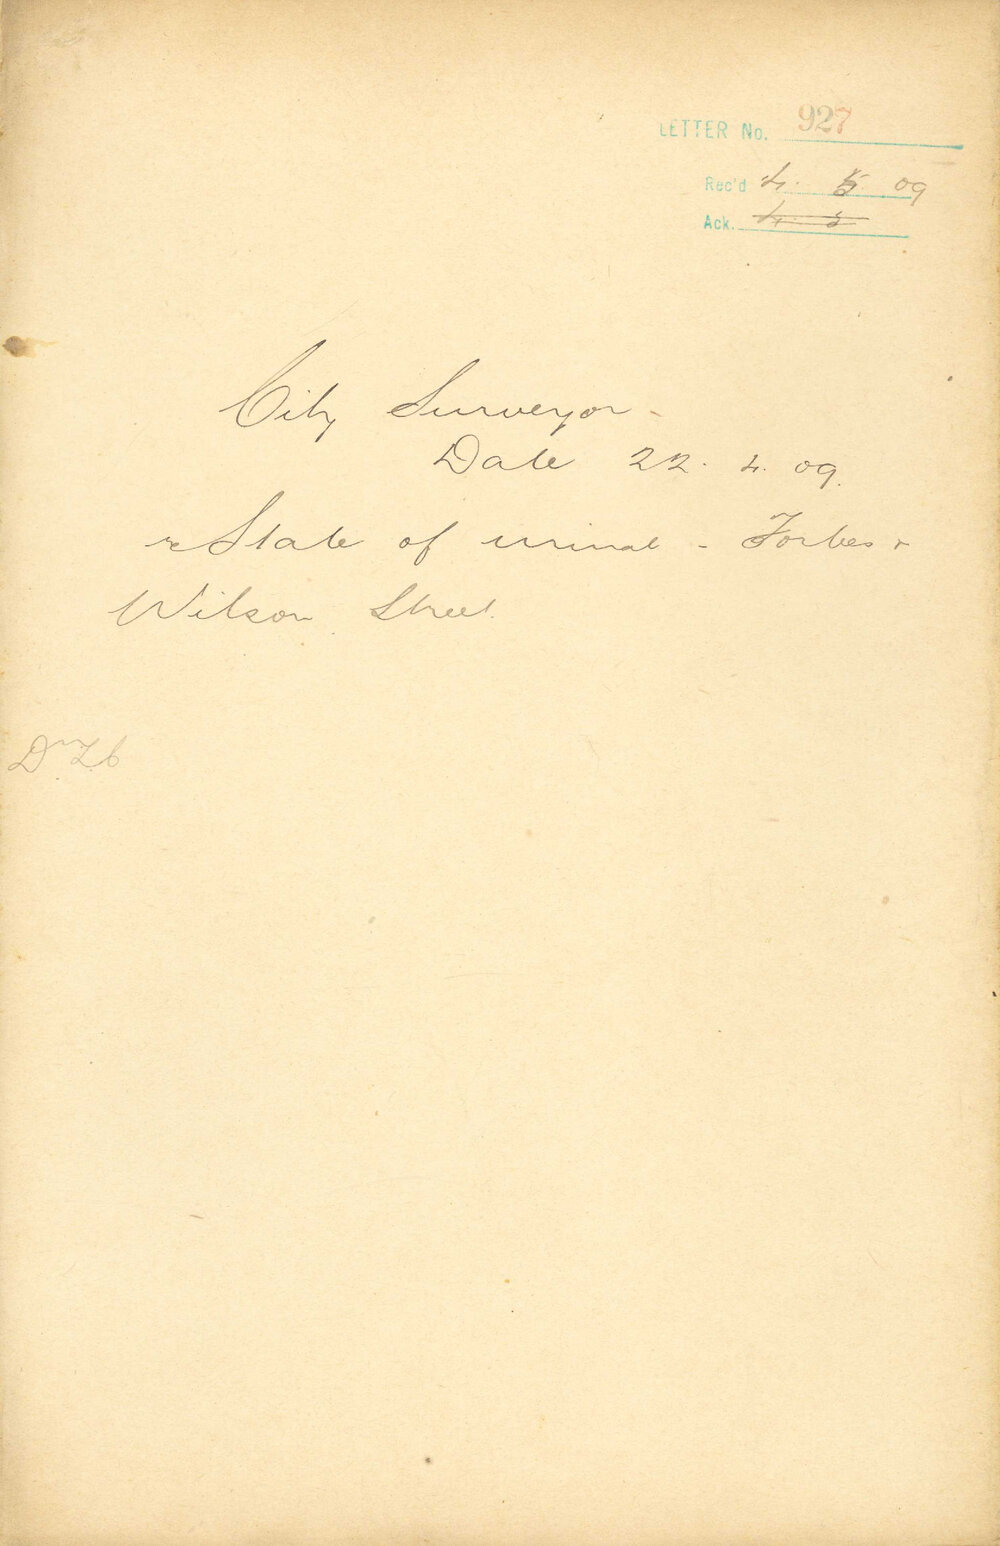 LETTER No. 927
Rec'd 4. 5 09
Ack. 4. 5
City Surveyor -
Date 22. 4. 09.
re State of urinal - Forbes &
Wilson Street.